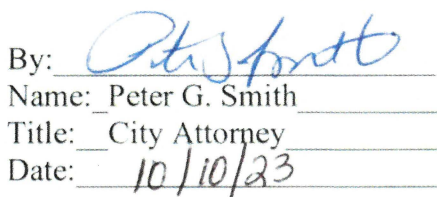 By: Peter G Smith
Name: Peter G. Smith
Title: City Attorney
Date: 10/10/23